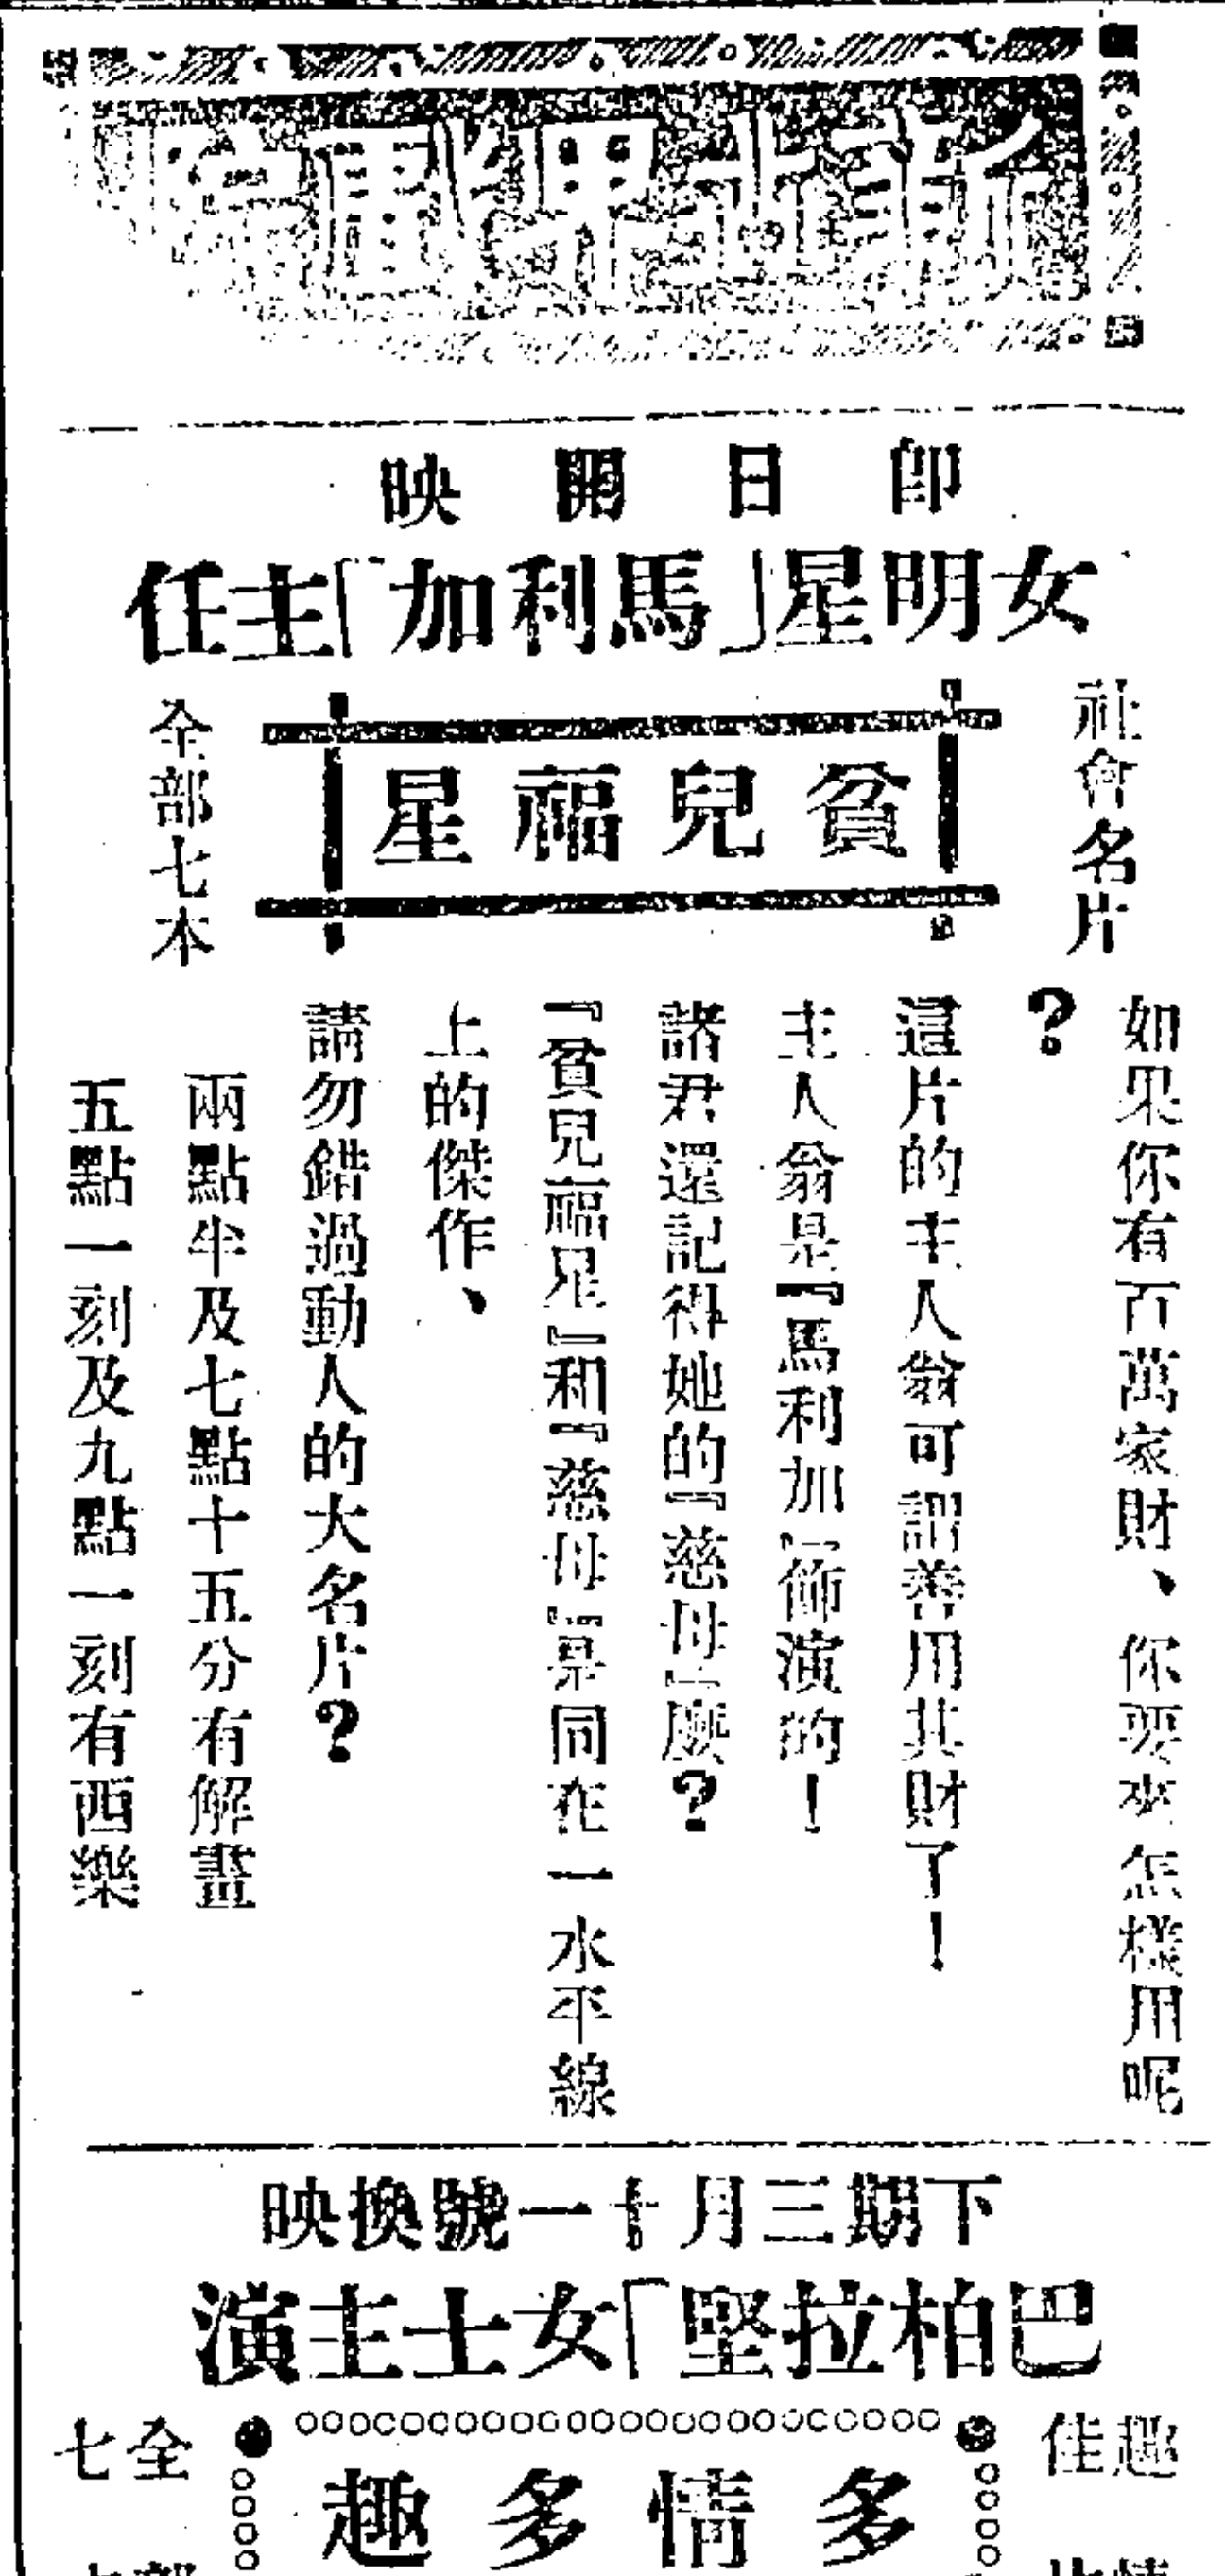 即日開映
女明星「馬利加」主任
社會名片
貧兒福星
全部七本
如果你有百萬家財、你要來怎樣用呢
?
這片的主人翁可謂善用其財了!
主人翁是『馬利加』飾演的!
諸君還記得她的『慈母』麼?
『貧兒福星』和『慈母』是同在一水平線
上的傑作、
請勿錯過動人的大名片?
兩點半及七點十五分有解畫
五點一刻及九點一刻有西樂
下期三月十一號換映
巴柏拉堅「女士主演
趣
佳
多情多趣
全
七